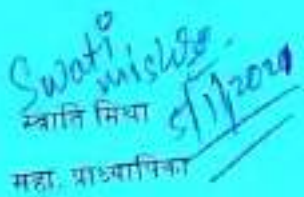 Swati
Mishra
स्वाति मिश्रा
5/1/2021
सहा. प्राध्यापिका